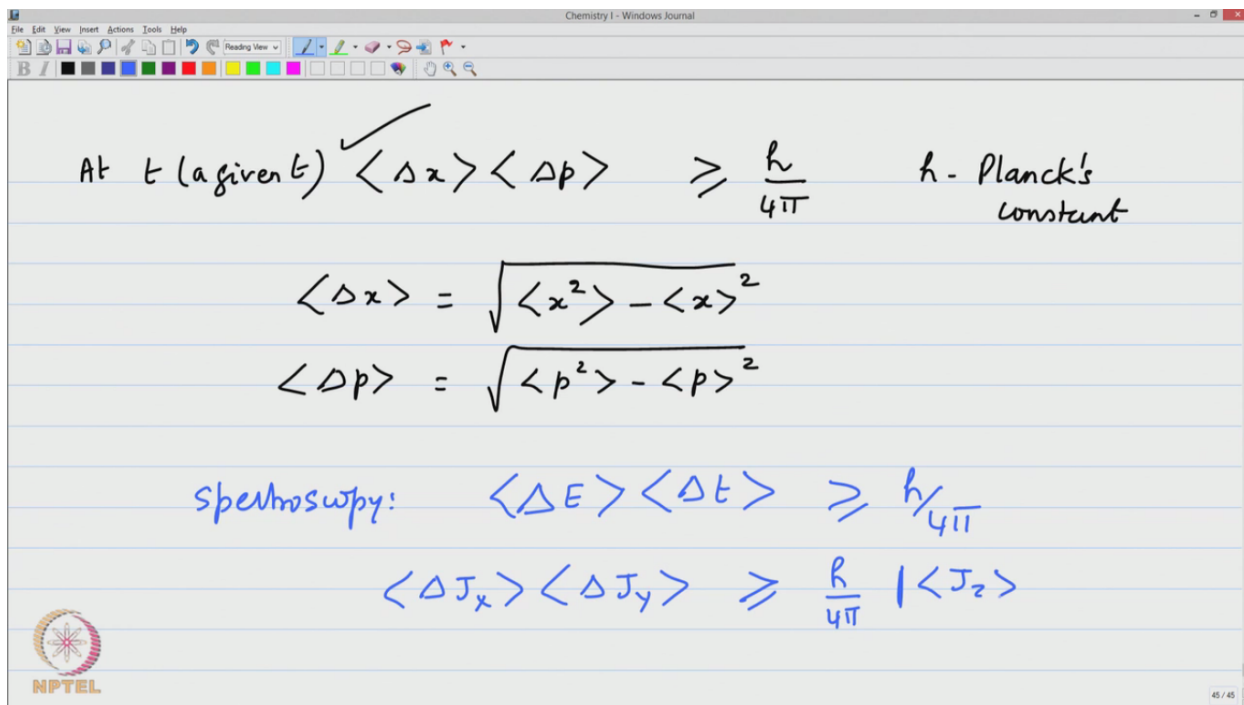 Chemistry I - Windows Journal
File Edit View Insert Actions Tools Help
Reading View
B I
At t (a given t) <Δx><Δp> ≥ h/4π h - Planck's
constant
<Δx> = √<x²> - <x>²
<Δp> = √<p²> - <p>²
Spectroscopy: <ΔE><Δt> ≥ h/4π
<ΔJx><ΔJy> ≥ h/4π |<Jz>
NPTEL
45 / 45